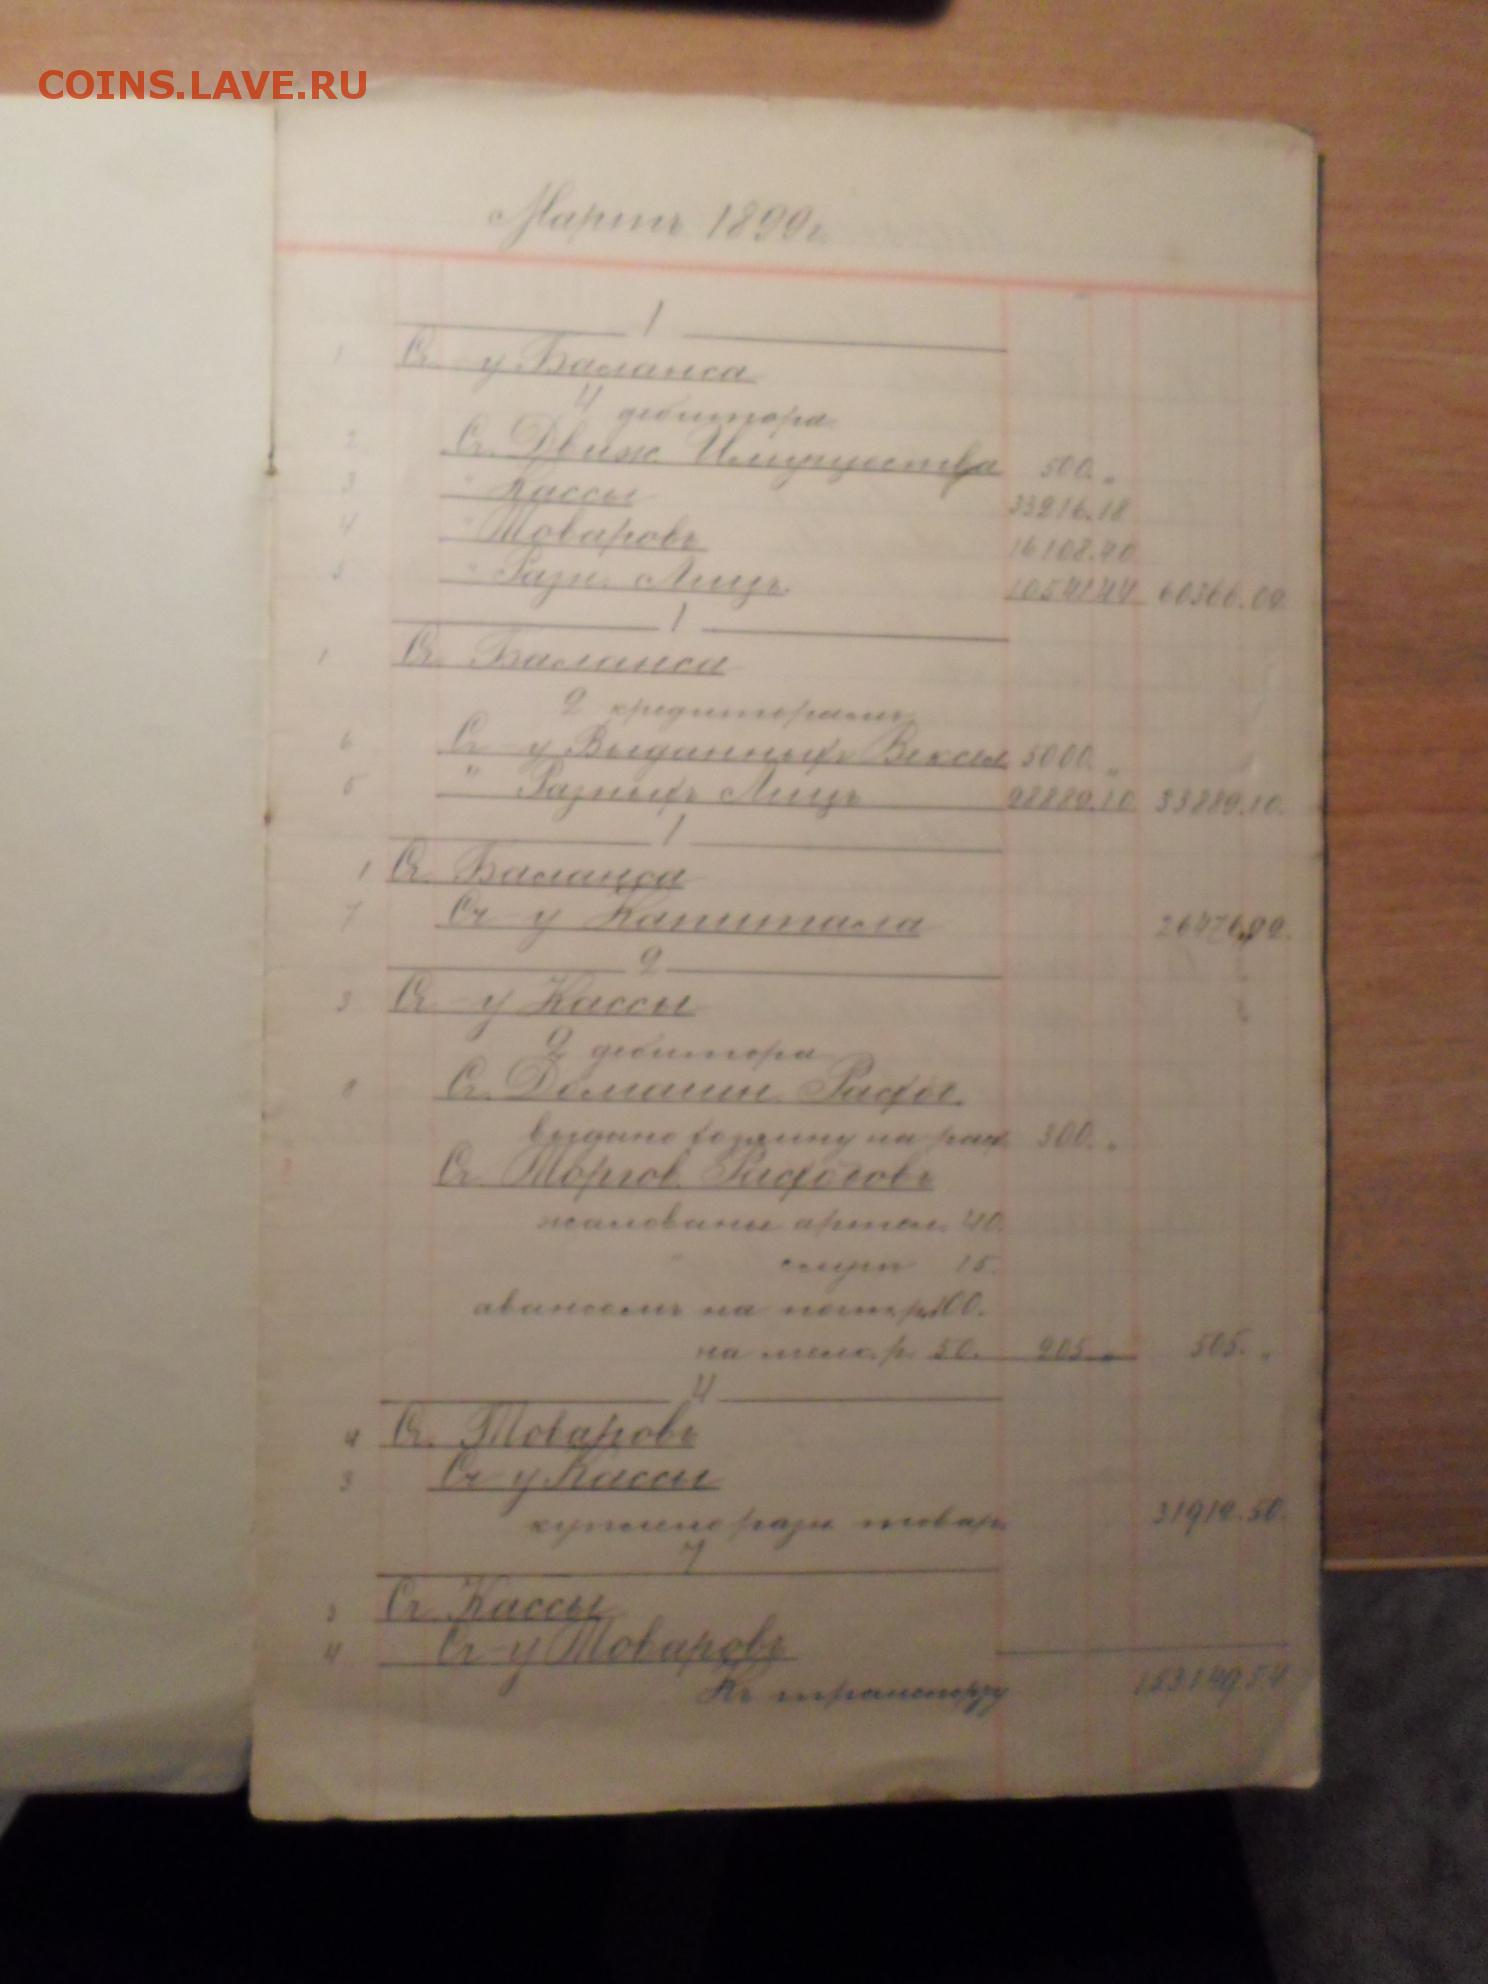 COINS.LAVE.RU
Мартъ 1890 г.
1
1 Сч-у Баланса
4 дебитора
2 Сч. Движ. Имущества 500. „
3 " Кассы 33216.18
4 " Товаровъ 16108.40
5 " Разн. Лицъ. 10541.44 60366.02
1
1 Сч. Баланса
2 кредиторамъ
6 Сч-у Выданныхъ Вексел. 5000. „
5 " Разныхъ Лицъ 28889.10 33889.10.
1
1 Сч. Баланса
7 Сч-у Капитала 26476.92.
2
3 Сч-у Кассы
2 дебитора
8 Сч. Домашн. Расх.
выдано хозяину на расх. 300. „
Сч. Торгов. Расходовъ
жалованы артел. 40.
" служ 15.
авансомъ на почт. р. 100.
на мелк. р. 50. 205. „ 505. „
4
4 Сч. Товаровъ
3 Сч-у Кассы
куплено разн. товар. 31912.50.
7
3 Сч. Кассы
4 Сч-у Товаровъ
Къ транспорту 153149.54